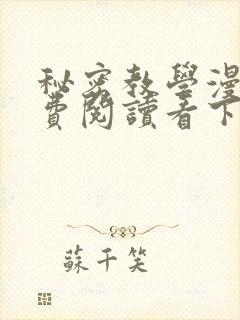 秘密教學漫
費閱讀看下
蘇千笑